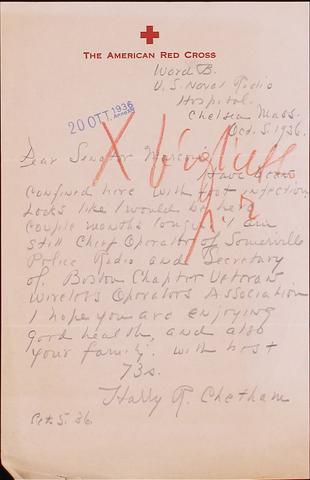 THE AMERICAN RED CROSS
Ward B.
U.S. Naval Radio
Hospital.
Chelsea Mass.
Oct. 5. 1936.
20 OTT 1936
Dear Senator Marconi
Have been
confined here with foot infection
Looks like I would be here
couple months longer. I am
still Chief Operator of Somerville
Police Radio and Secretary
of Boston Chapter Veteran
Wireless Operators Association
I hope you are enjoying
good health, and also
your family. with best
73s.
Harry R. Chetham
Oct. 5. 36